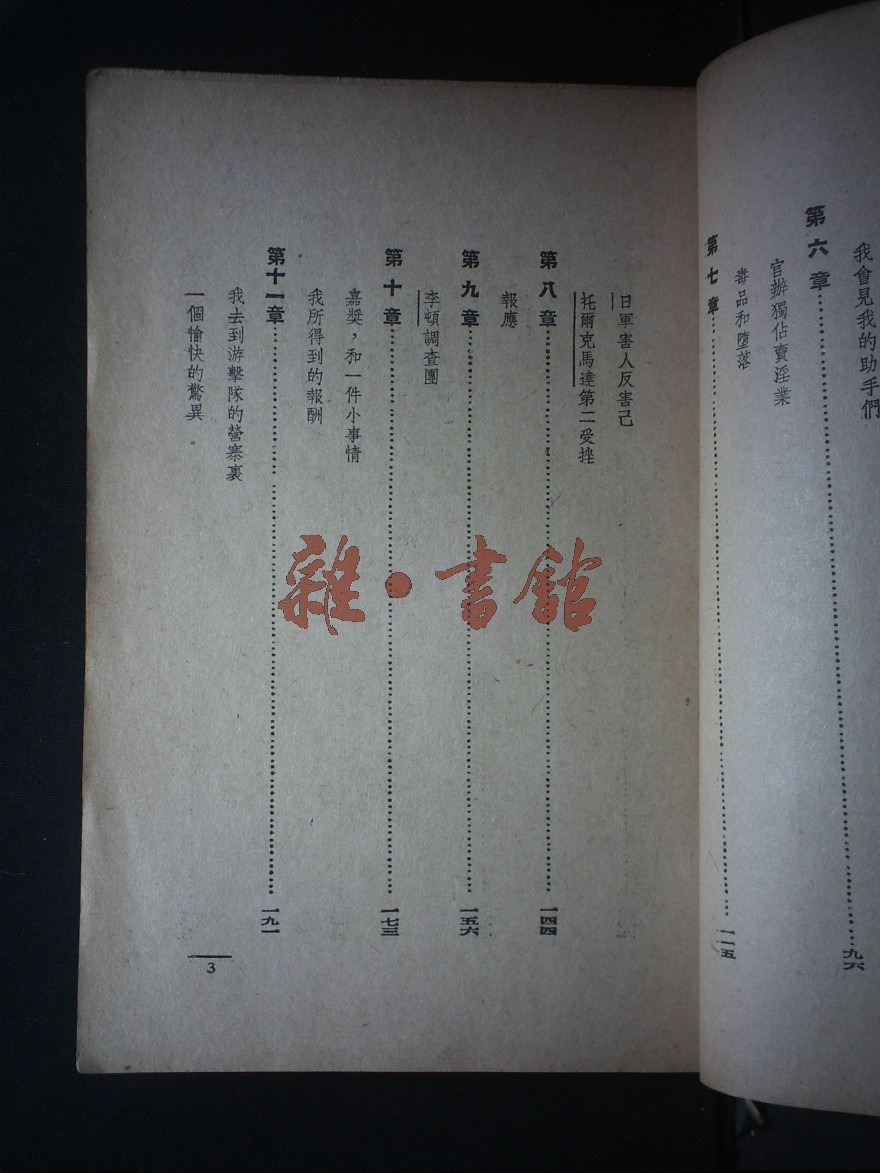 我會見我的助手們
第六章……九六
官辦獨佔賣淫業
毒品和墮落
第七章……一一五
日軍害人反害己
托爾克馬達第二受挫
第八章……一四四
報應
第九章……一五六
李頓調查團
第十章……一七三
嘉獎，和一件小事情
我所得到的報酬
第十一章……一九一
我去到游擊隊的營寨裏
一個愉快的驚異
3
雜·書館